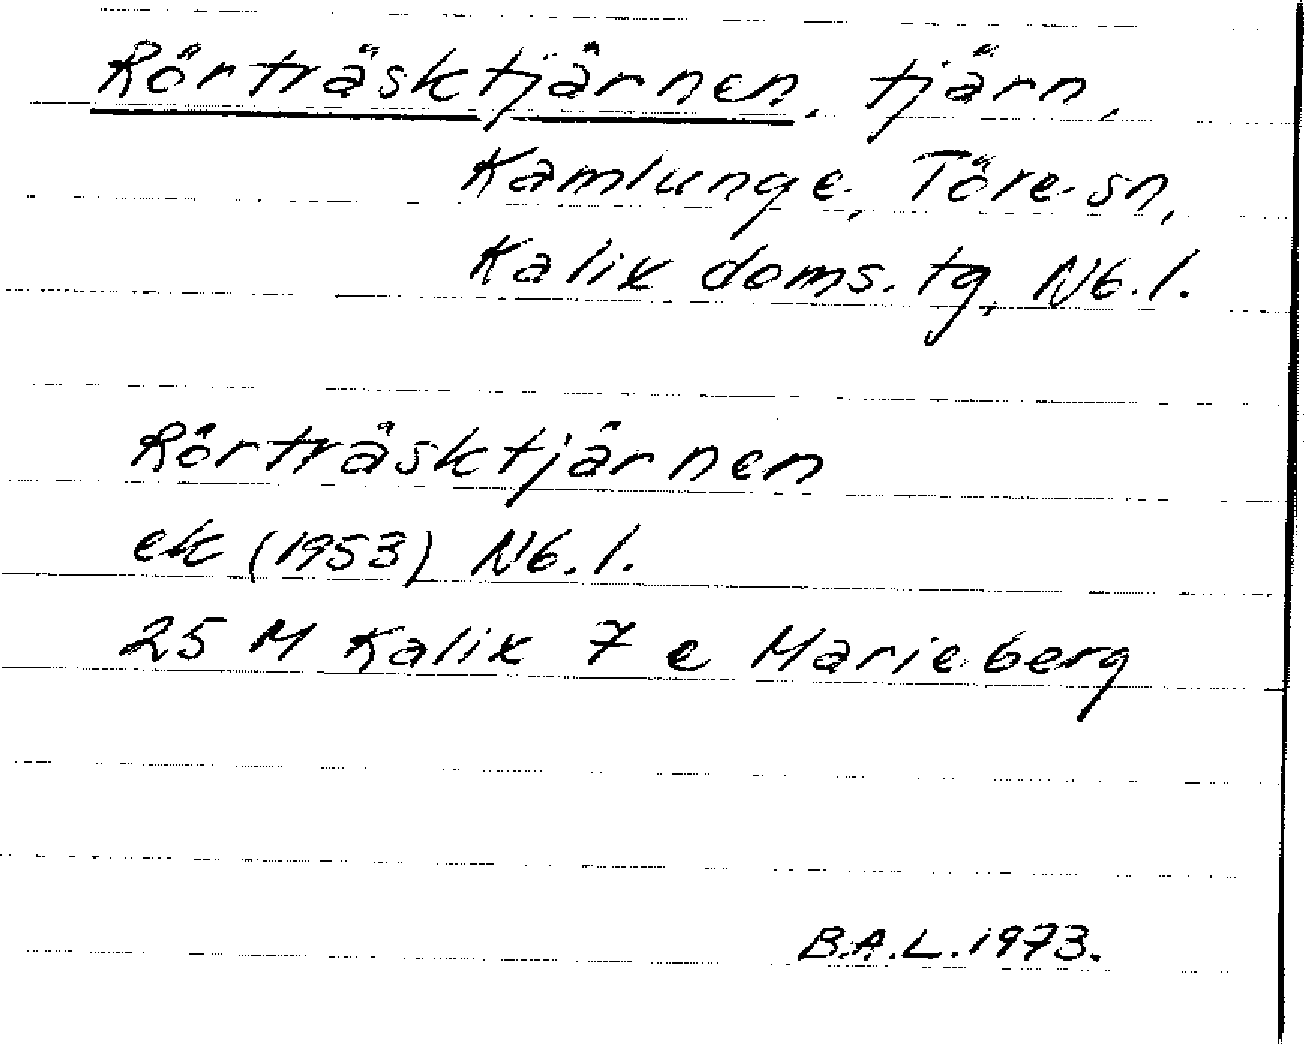 Rörträsktjärnen, tjärn,
Kamlunge, Töre sn,
Kalix doms. tg, Nb. l.
Rörträsktjärnen
ek (1953) Nb. l.
25 M Kalix 7 e Marieberg
B.A.L. 1973.